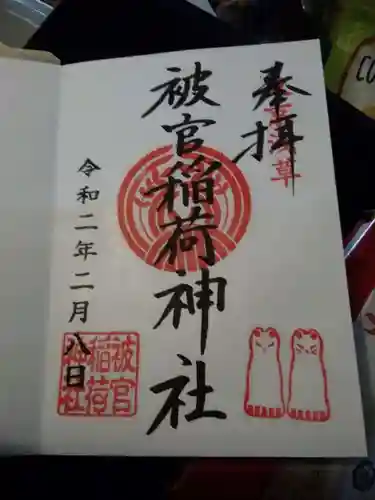 奉拝
浅草
被官稲荷神社
令和二年二月八日
被官
稲荷
神社